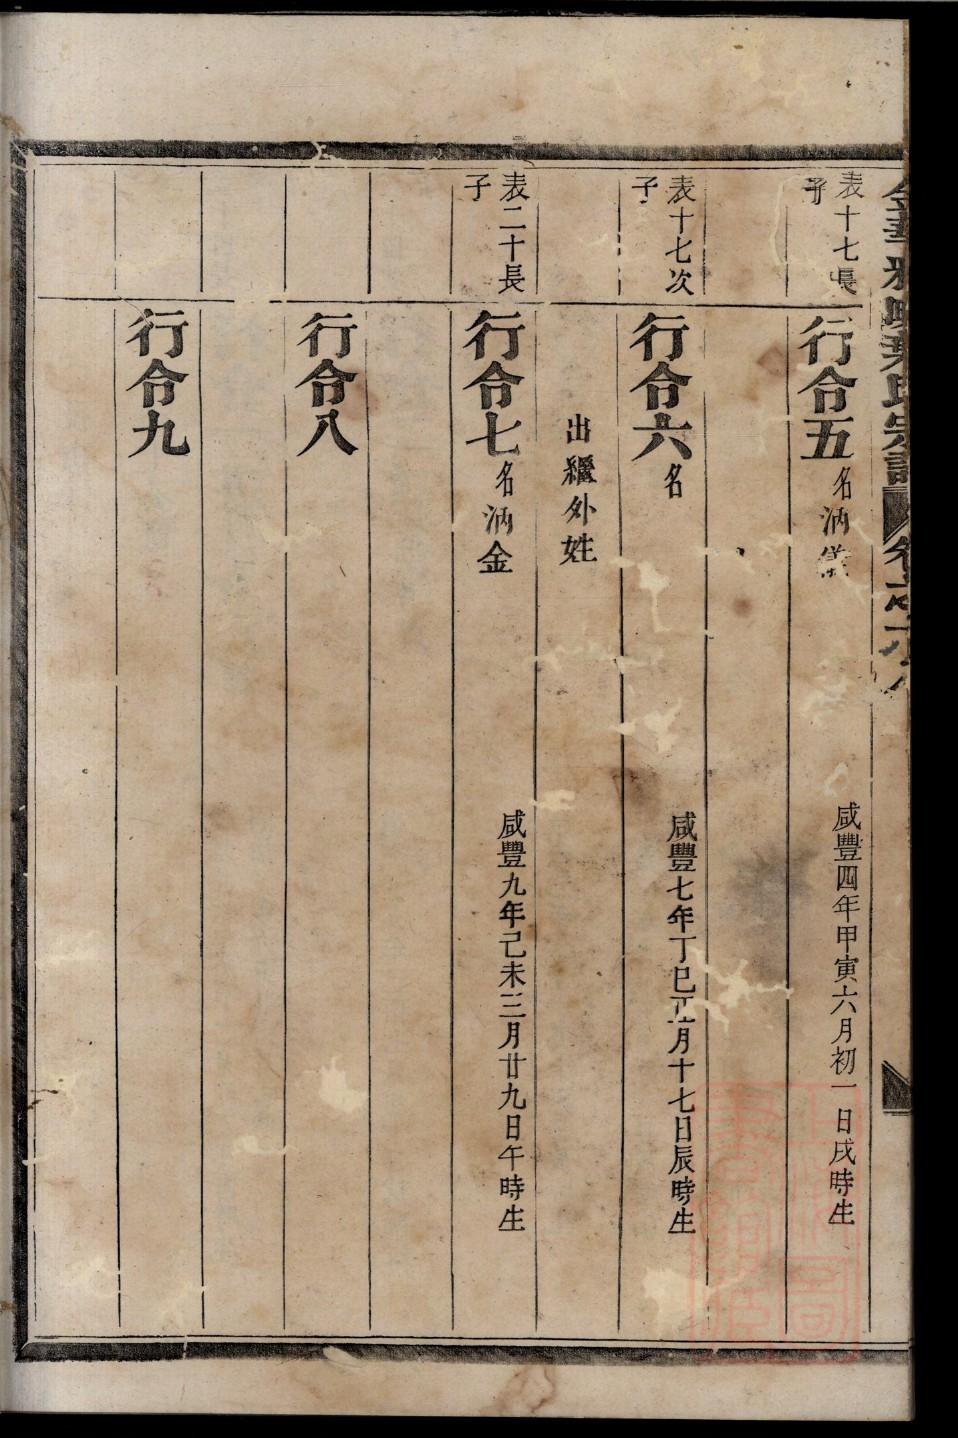 金華
葉氏宗譜
卷之
表十七長
子
行令五
名汭
咸豐四年甲寅六月初一日戌時生
表十七次
子
行令六
名
咸豐七年丁巳正月十七日辰時生
出繼外姓
表二十長
子
行令七
名汭金
咸豐九年己未三月廿九日午時生
行令八
行令九